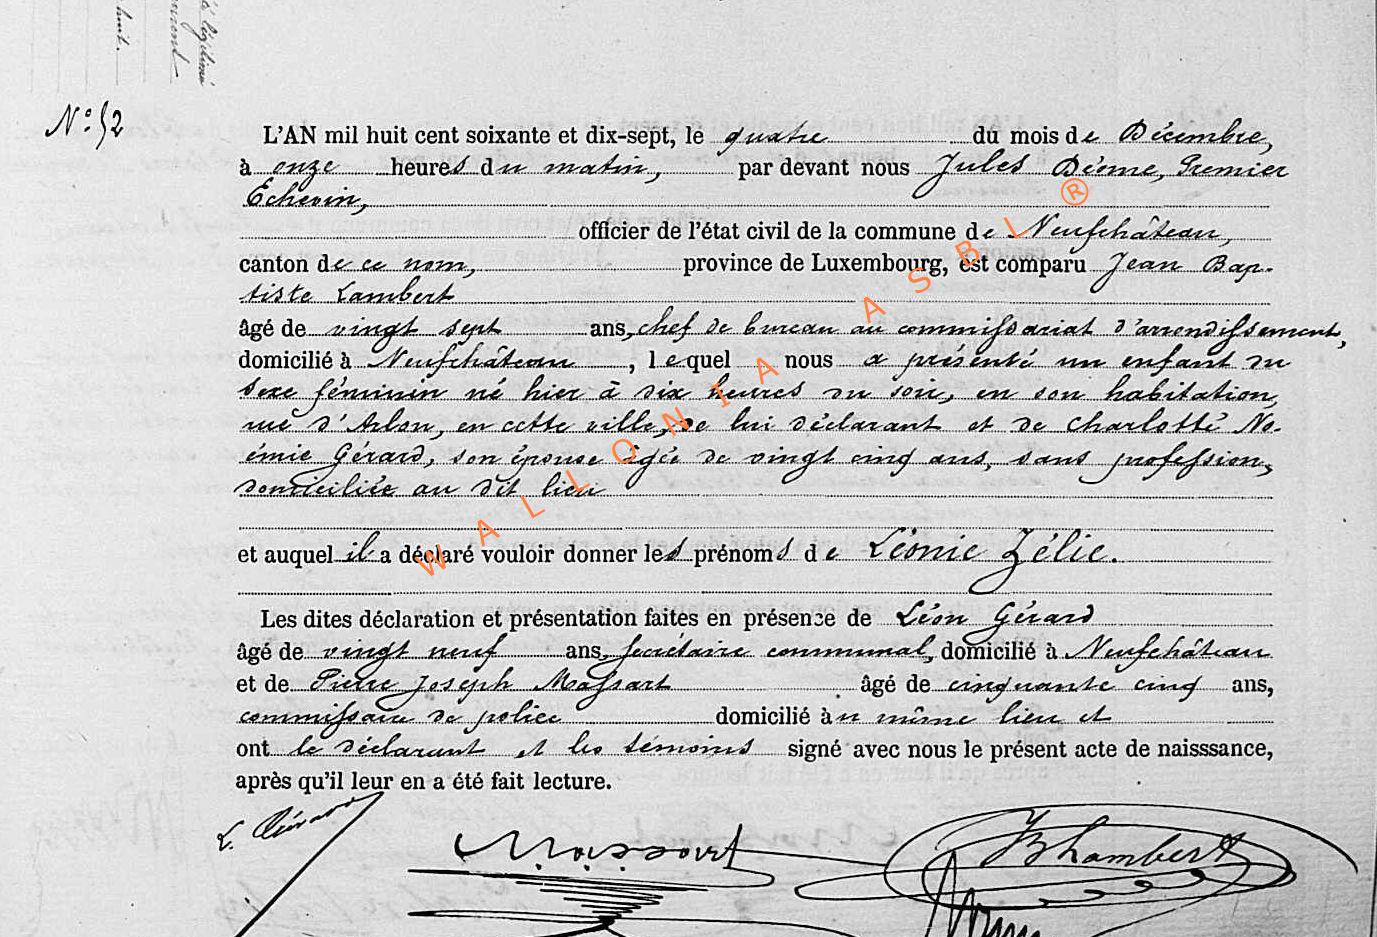 é légitimé
huit.
N° 52
L'AN mil huit cent soixante et dix-sept, le quatre du mois de Décembre,
à onze heures du matin, par devant nous Jules Déome, Premier
Echevin,
officier de l'état civil de la commune de Neufchâteau,
canton de ce nom, province de Luxembourg, est comparu Jean Bap-
tiste Lambert
âgé de vingt sept ans, chef de bureau au commissariat d'arrondissement,
domicilié à Neufchâteau, lequel nous a présenté un enfant du
sexe féminin né hier à dix heures du soir, en son habitation,
rue d'Arlon, en cette ville, de lui déclarant et de Charlotte No-
émie Gérard, son épouse âgée de vingt cinq ans, sans profession,
domiciliée au dit lieu
et auquel il a déclaré vouloir donner les prénoms de Léonie Zélie.
Les dites déclaration et présentation faites en présence de Léon Gérard
âgé de vingt neuf ans, secrétaire communal, domicilié à Neufchâteau
et de Pierre Joseph Massart âgé de cinquante cinq ans,
commissaire de police domicilié au même lieu et
ont le déclarant et les témoins signé avec nous le présent acte de naisssance,
après qu'il leur en a été fait lecture.
L. Gérard
Massart
JBLambert
WALLONIA ASBL ®